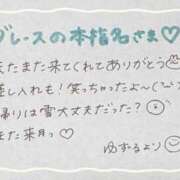 ブレースの本指名さま♡
またまた来てくれてありがとう
差し入れも！笑っちゃったよ〜
帰りは雪大丈夫だった？
また来月っ♡
ゆずるより